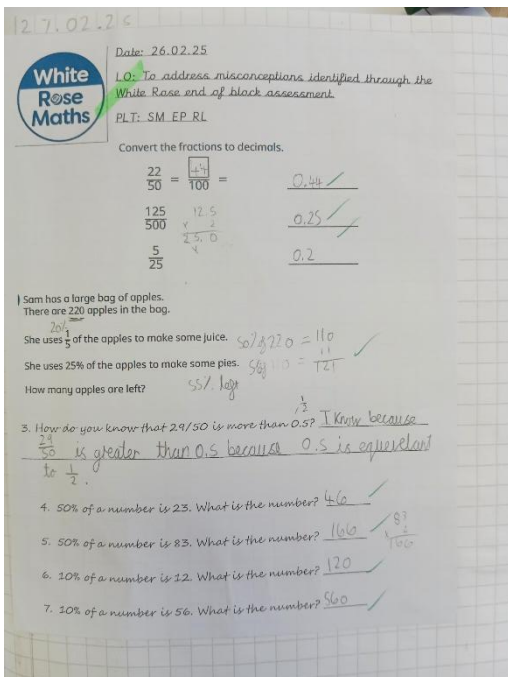 127.02.25
Date: 26.02.25
White
Rose
Maths
LO: To address misconceptions identified through the
White Rose end of block assessment
PLT: SM EP RL
Convert the fractions to decimals.
22/50 = 44/100 = 0.44
125/500 12.5 0.25
x 2
25.0
5/25 0.2
Sam has a large bag of apples.
There are 220 apples in the bag.
20%
She uses 1/5 of the apples to make some juice. 50% of 220 = 110
She uses 25% of the apples to make some pies. = 11
121
How many apples are left? 55% left
1/2
3. How do you know that 29/50 is more than 0.5? I know because
29/50 is greater than 0.5 because 0.5 is equevelant
to 1/2.
4. 50% of a number is 23. What is the number? 46
5. 50% of a number is 83. What is the number? 166 83
166
6. 10% of a number is 12. What is the number? 120
7. 10% of a number is 56. What is the number? 560